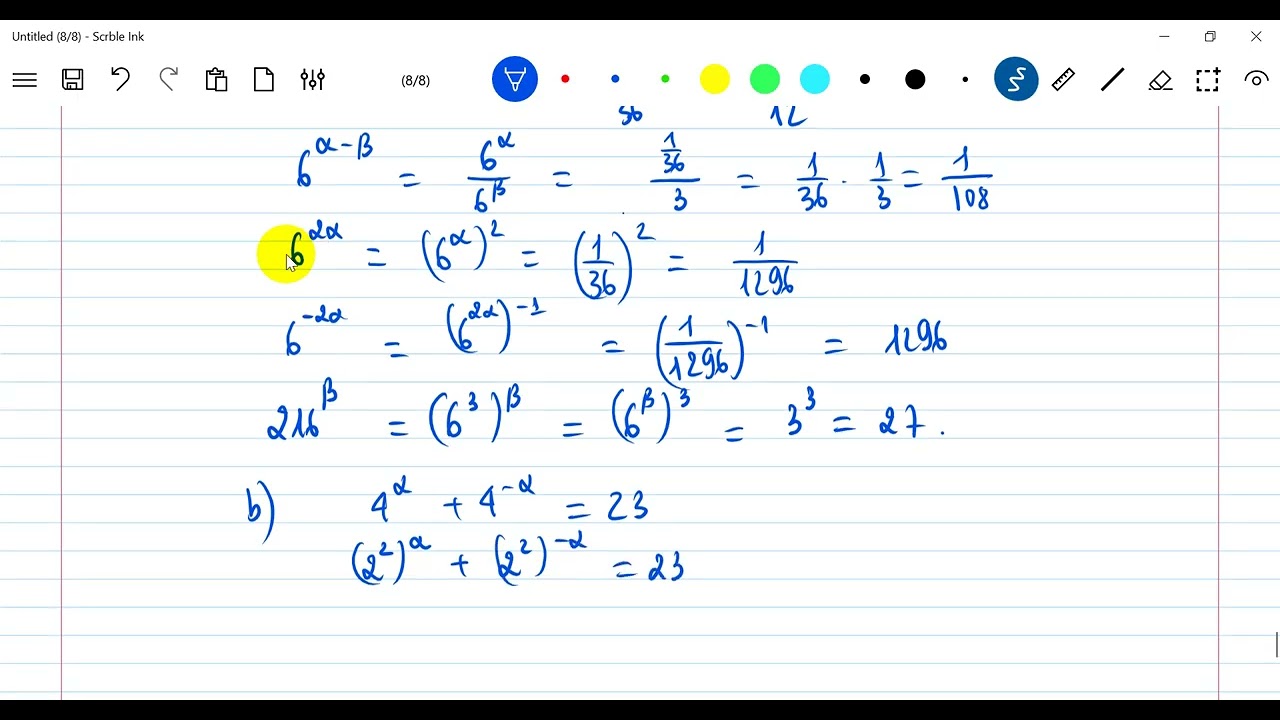 Untitled (8/8) - Scrble Ink
(8/8)
36 12
6^{α-β} = \frac{6^α}{6^β} = \frac{\frac{1}{36}}{3} = \frac{1}{36} · \frac{1}{3} = \frac{1}{108}
6^{2α} = (6^α)^2 = (\frac{1}{36})^2 = \frac{1}{1296}
6^{-2α} = (6^{2α})^{-1} = (\frac{1}{1296})^{-1} = 1296
216^β = (6^3)^β = (6^β)^3 = 3^3 = 27.
b) 4^α + 4^{-α} = 23
(2^2)^α + (2^2)^{-α} = 23